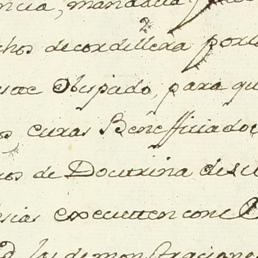 ncia, mandada
chos de cordillera por l
este Obispado, para qu
os curas Benefficiado
os de Doctrina de su
esias executten con el
d las demonstraciones